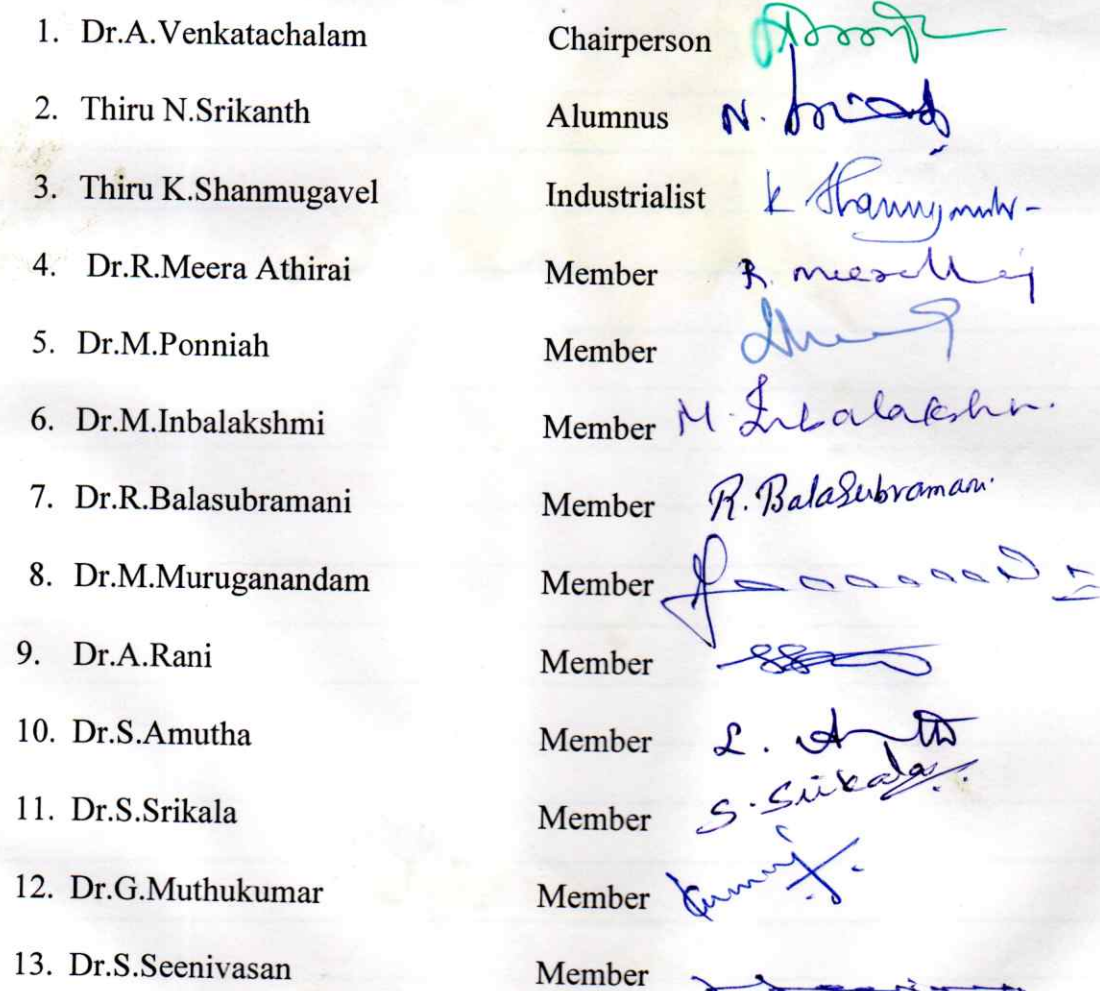 1. Dr.A.Venkatachalam Chairperson
2. Thiru N.Srikanth Alumnus N.
3. Thiru K.Shanmugavel Industrialist K
4. Dr.R.Meera Athirai Member R.
5. Dr.M.Ponniah Member
6. Dr.M.Inbalakshmi Member M. Inbalakshm.
7. Dr.R.Balasubramani Member R. BalaSubramani.
8. Dr.M.Muruganandam Member
9. Dr.A.Rani Member
10. Dr.S.Amutha Member
11. Dr.S.Srikala Member S. Srikala
12. Dr.G.Muthukumar Member
13. Dr.S.Seenivasan Member